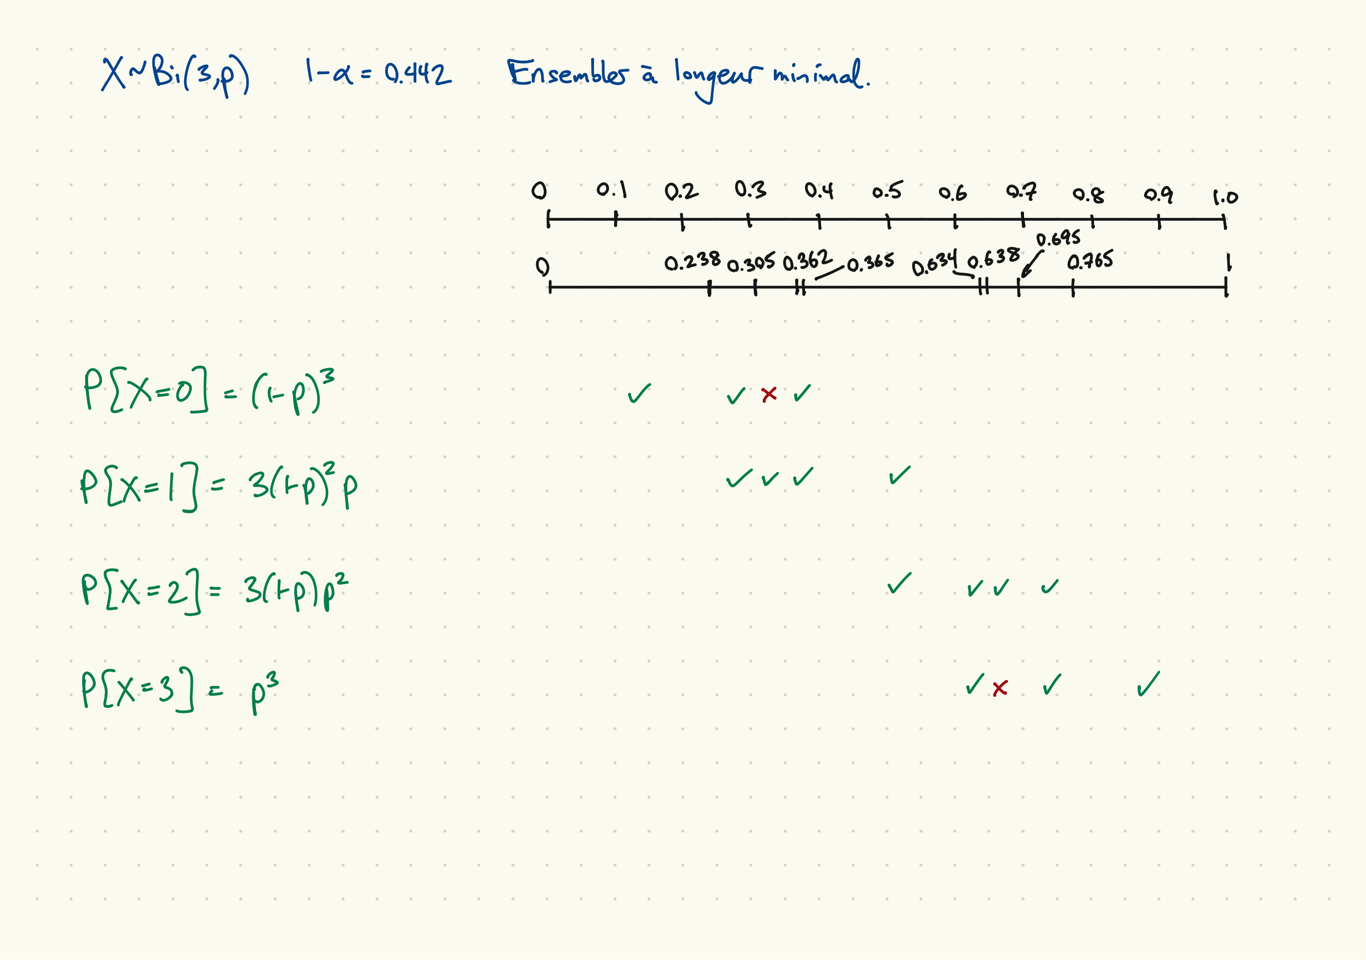 X~Bi(3,p) 1-α = 0.442 Ensembles à longeur minimal.
0 0.1 0.2 0.3 0.4 0.5 0.6 0.7 0.8 0.9 1.0
0 0.238 0.305 0.362 0.365 0.634 0.638 0.695 0.765 1
P[X=0] = (1-p)³ ✓ ✓ × ✓
P[X=1] = 3(1-p)²p ✓ ✓ ✓ ✓
P[X=2] = 3(1-p)p² ✓ ✓ ✓ ✓
P[X=3] = p³ ✓ × ✓ ✓